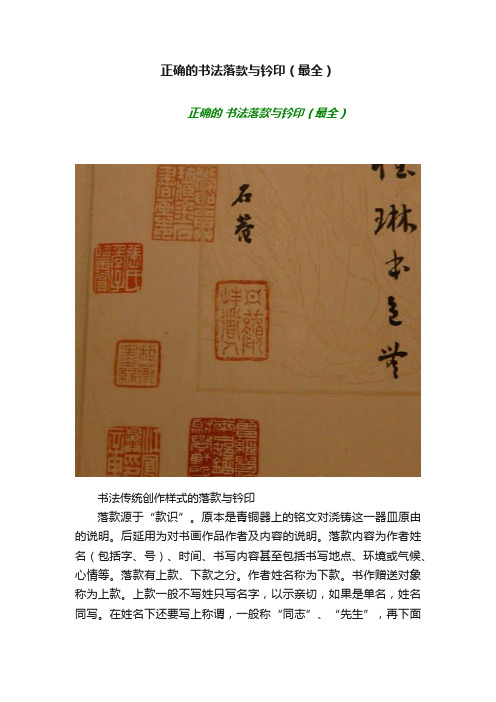 正确的书法落款与钤印（最全）
正确的 书法落款与钤印（最全）
琳本主
石菴
书法传统创作样式的落款与钤印
落款源于“款识”。原本是青铜器上的铭文对浇铸这一器皿原由
的说明。后延用为对书画作品作者及内容的说明。落款内容为作者姓
名（包括字、号）、时间、书写内容甚至包括书写地点、环境或气候、
心情等。落款有上款、下款之分。作者姓名称为下款。书作赠送对象
称为上款。上款一般不写姓只写名字，以示亲切，如果是单名，姓名
同写。在姓名下还要写上称谓，一般称“同志”、“先生”，再下面